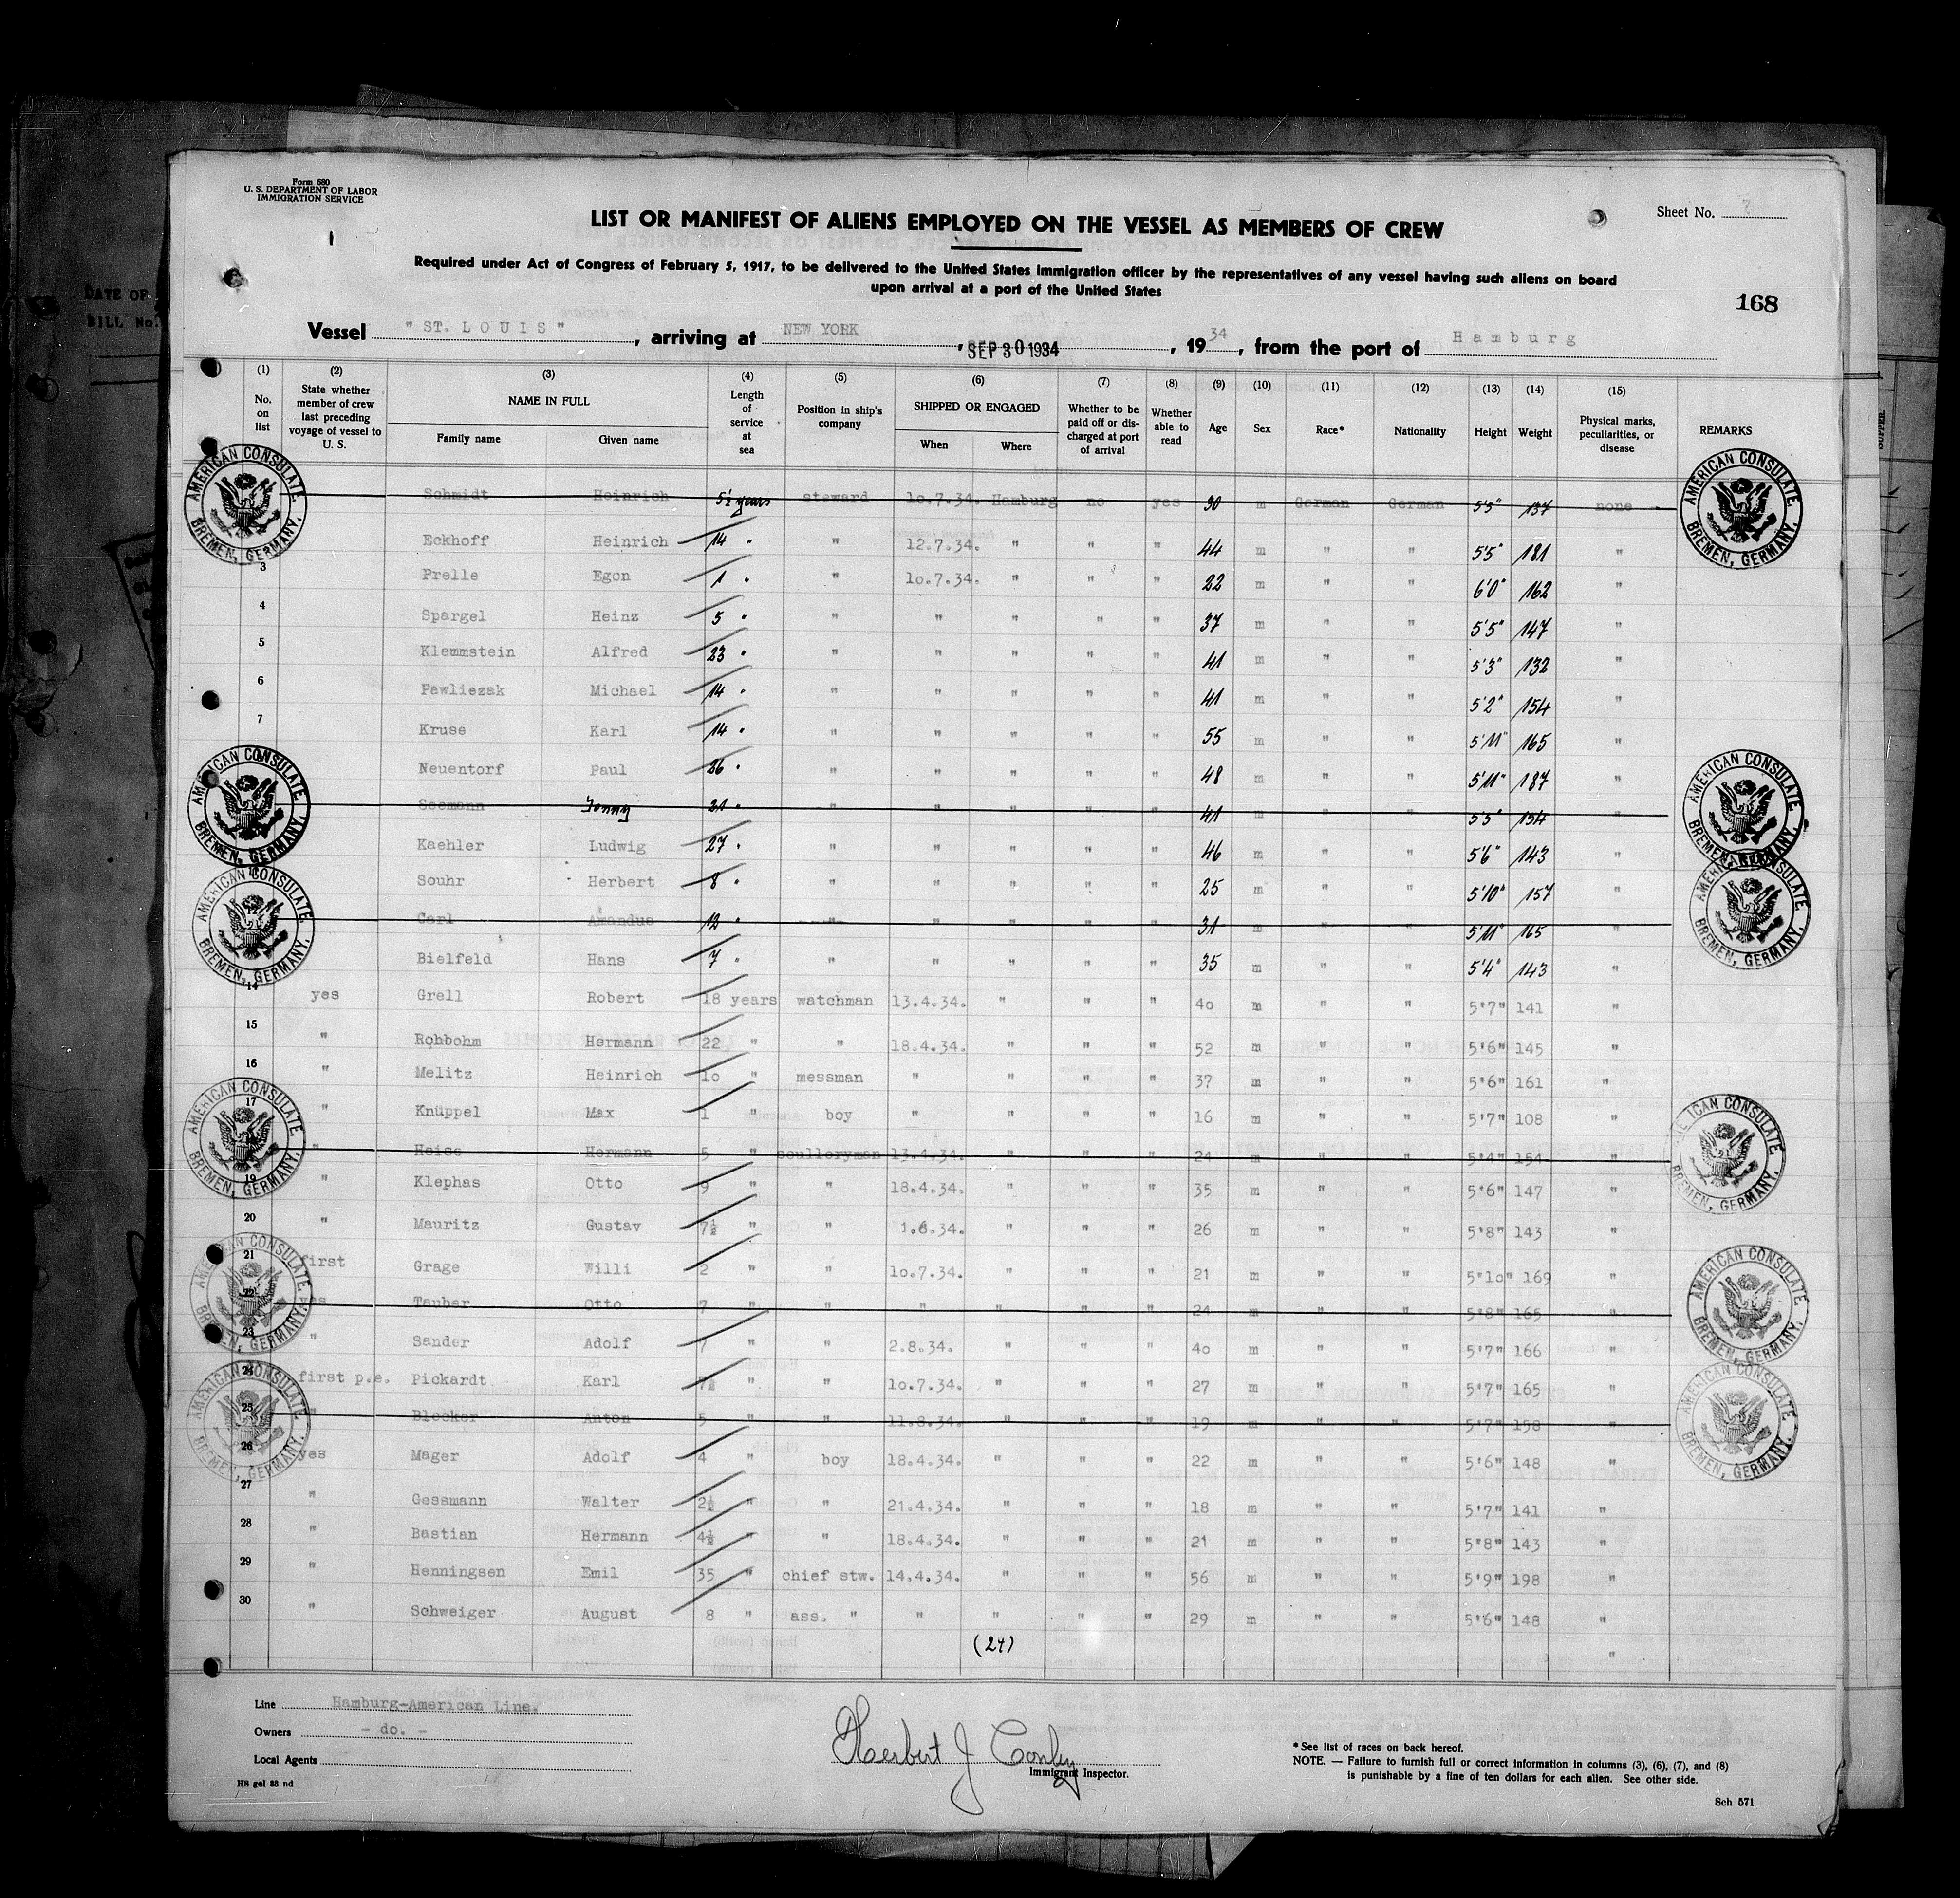 Form 680
U. S. DEPARTMENT OF LABOR
IMMIGRATION SERVICE
Sheet No.
LIST OR MANIFEST OF ALIENS EMPLOYED ON THE VESSEL AS MEMBERS OF CREW
Required under Act of Congress of February 5, 1917, to be delivered to the United States immigration officer by the representatives of any vessel having such aliens on board
upon arrival at a port of the United States
168
DATE OF
BILL No.
Vessel "ST. LOUIS", arriving at NEW YORK, SEP 30 1934, 1934, from the port of Hamburg
(1) (2) (3) (4) (5) (6) (7) (8) (9) (10) (11) (12) (13) (14) (15)
No. on list State whether member of crew last preceding voyage of vessel to U. S. NAME IN FULL Family name Given name Length of service at sea Position in ship's company SHIPPED OR ENGAGED When Where Whether to be paid off or discharged at port of arrival Whether able to read Age Sex Race* Nationality Height Weight Physical marks, peculiarities, or disease REMARKS
AMERICAN CONSULATE. BREMEN, GERMANY.
Schmidt Heinrich 5½ years steward 10.7.34. Hamburg no yes 30 m German German 5'5" 137 none
Eckhoff Heinrich 14 " " 12.7.34. " " " 44 m " " 5'5" 181 "
3 Prelle Egon 1 " " 10.7.34. " " " 22 m " " 6'0" 162 "
4 Spargel Heinz 5 " " " " " " 37 m " " 5'5" 147 "
5 Klemmstein Alfred 23 " " " " " " 41 m " " 5'3" 132 "
6 Pawliezak Michael 14 " " " " " " 41 m " " 5'2" 154 "
7 Kruse Karl 14 " " " " " " 55 m " " 5'11" 165 "
Neuentorf Paul 26 " " " " " " 48 m " " 5'11" 187 "
Seemann Jonny 21 " " " " " " 41 " " 5'5" 154 "
Kaehler Ludwig 27 " " " " " " 46 m " " 5'6" 143 "
Souhr Herbert 8 " " " " " " 25 m " " 5'10" 157 "
Carl Amandus 12 " " " " " " 31 m " " 5'11" 165 "
Bielfeld Hans 7 " " " " " " 35 m " " 5'4" 143 "
14 yes Grell Robert 18 years watchman 13.4.34. " " " 40 m " " 5'7" 141 "
15 " Rohbohm Hermann 22 " " 18.4.34. " " " 52 m " " 5'6" 145 "
16 " Melitz Heinrich 10 " messman " " " " 37 m " " 5'6" 161 "
17 " Knüppel Max 1 " boy " " " " 16 m " " 5'7" 108 "
" Heise Hermann 5 " sculleryman 13.4.34. " " " 24 m " " 5'4" 154 "
19 " Klephas Otto 9 " " 18.4.34. " " " 35 m " " 5'6" 147 "
20 " Mauritz Gustav 7½ " " 1.6.34. " " " 26 m " " 5'8" 143 "
21 first Grage Willi 2 " " 10.7.34. " " " 21 m " " 5'10" 169 "
22 yes Tauber Otto 7 " " " " " " 24 m " " 5'8" 165 "
23 " Sander Adolf 7 " " 2.8.34. " " " 40 m " " 5'7" 166 "
24 first p.e. Pickardt Karl 7½ " " 10.7.34. " " " 27 m " " 5'7" 165 "
25 " Blecker Anton 5 " " 11.8.34. " " " 19 m " " 5'7" 158 "
26 yes Mager Adolf 4 " boy 18.4.34. " " " 22 m " " 5'6" 148 "
27 " Gessmann Walter 2½ " " 21.4.34. " " " 18 m " " 5'7" 141 "
28 " Bastian Hermann 4½ " " 18.4.34. " " " 21 m " " 5'8" 143 "
29 " Henningsen Emil 35 " chief stw. 14.4.34. " " " 56 m " " 5'9" 198 "
30 " Schweiger August 8 " ass. " " " " " 29 m " " 5'6" 148 "
(24) "
Line Hamburg-American Line.
Owners - do. -
Local Agents
HS gel 33 nd
Herbert J Conley
Immigrant Inspector.
* See list of races on back hereof.
NOTE. — Failure to furnish full or correct information in columns (3), (6), (7), and (8)
is punishable by a fine of ten dollars for each alien. See other side.
Sch 571